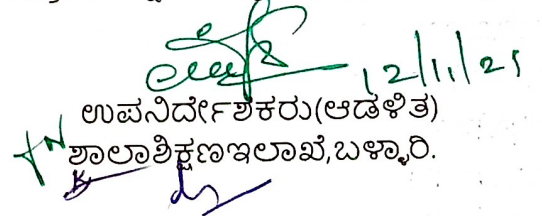 12/11/25
ಉಪನಿರ್ದೇಶಕರು(ಆಡಳಿತ)
ಶಾಲಾಶಿಕ್ಷಣಇಲಾಖೆ,ಬಳ್ಳಾರಿ.